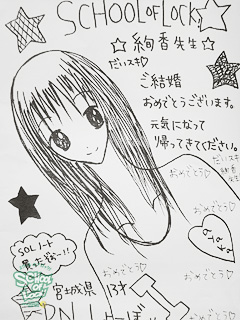 SCHOOL OF LOCK!
☆絢香先生☆
だいスキ♡
ご結婚
おめでとうございます。
元気になって
帰ってきてください。
おめでとう♡
おめでとう♡
おめでとう♡
おめでとう♡
だいスキ♡
絢香
先生
SOLノート
買ったよー!!
宮城県
13才